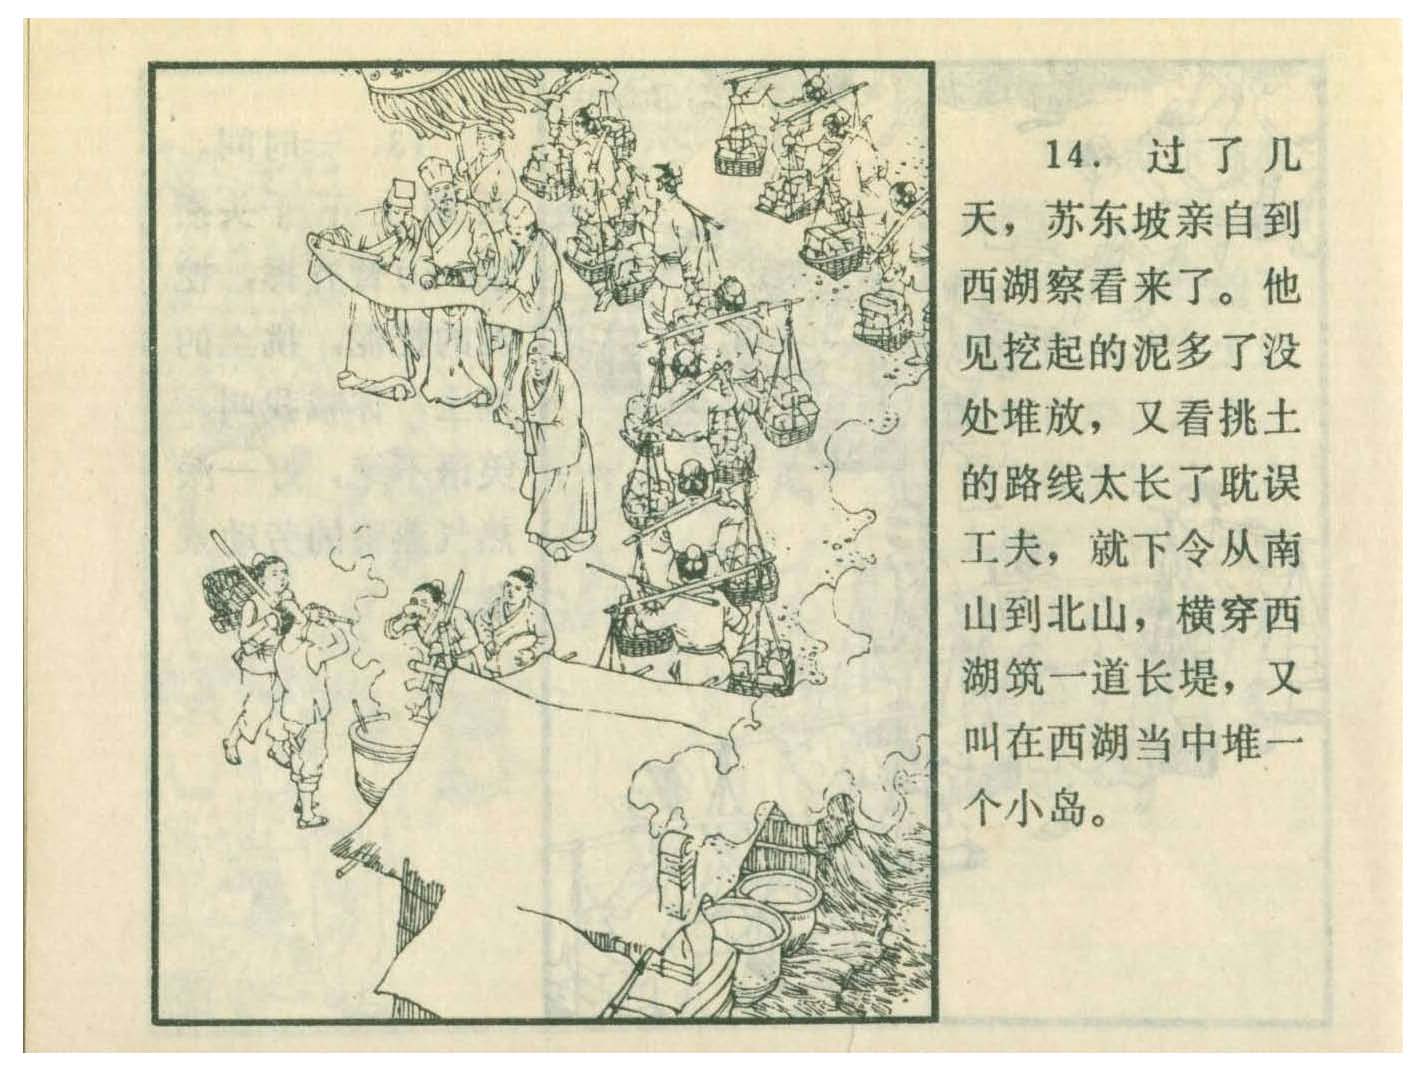 14. 过了几
天，苏东坡亲自到
西湖察看来了。他
见挖起的泥多了没
处堆放，又看挑土
的路线太长了耽误
工夫，就下令从南
山到北山，横穿西
湖筑一道长堤，又
叫在西湖当中堆一
个小岛。